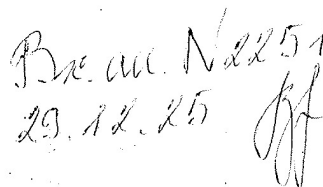 Вх. ан. N 2251
29.12.25